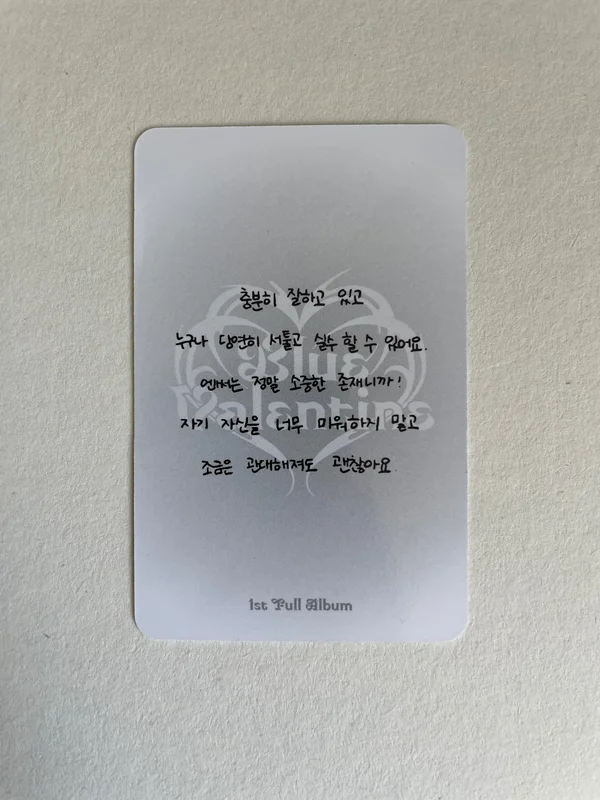 충분히 잘하고 있고
누구나 당연히 서툴고 실수 할 수 있어요.
Blue
엔써는 정말 소중한 존재니까!
Valentine
자기 자신을 너무 미워하지 말고
조금은 관대해져도 괜찮아요.
1st Full Album